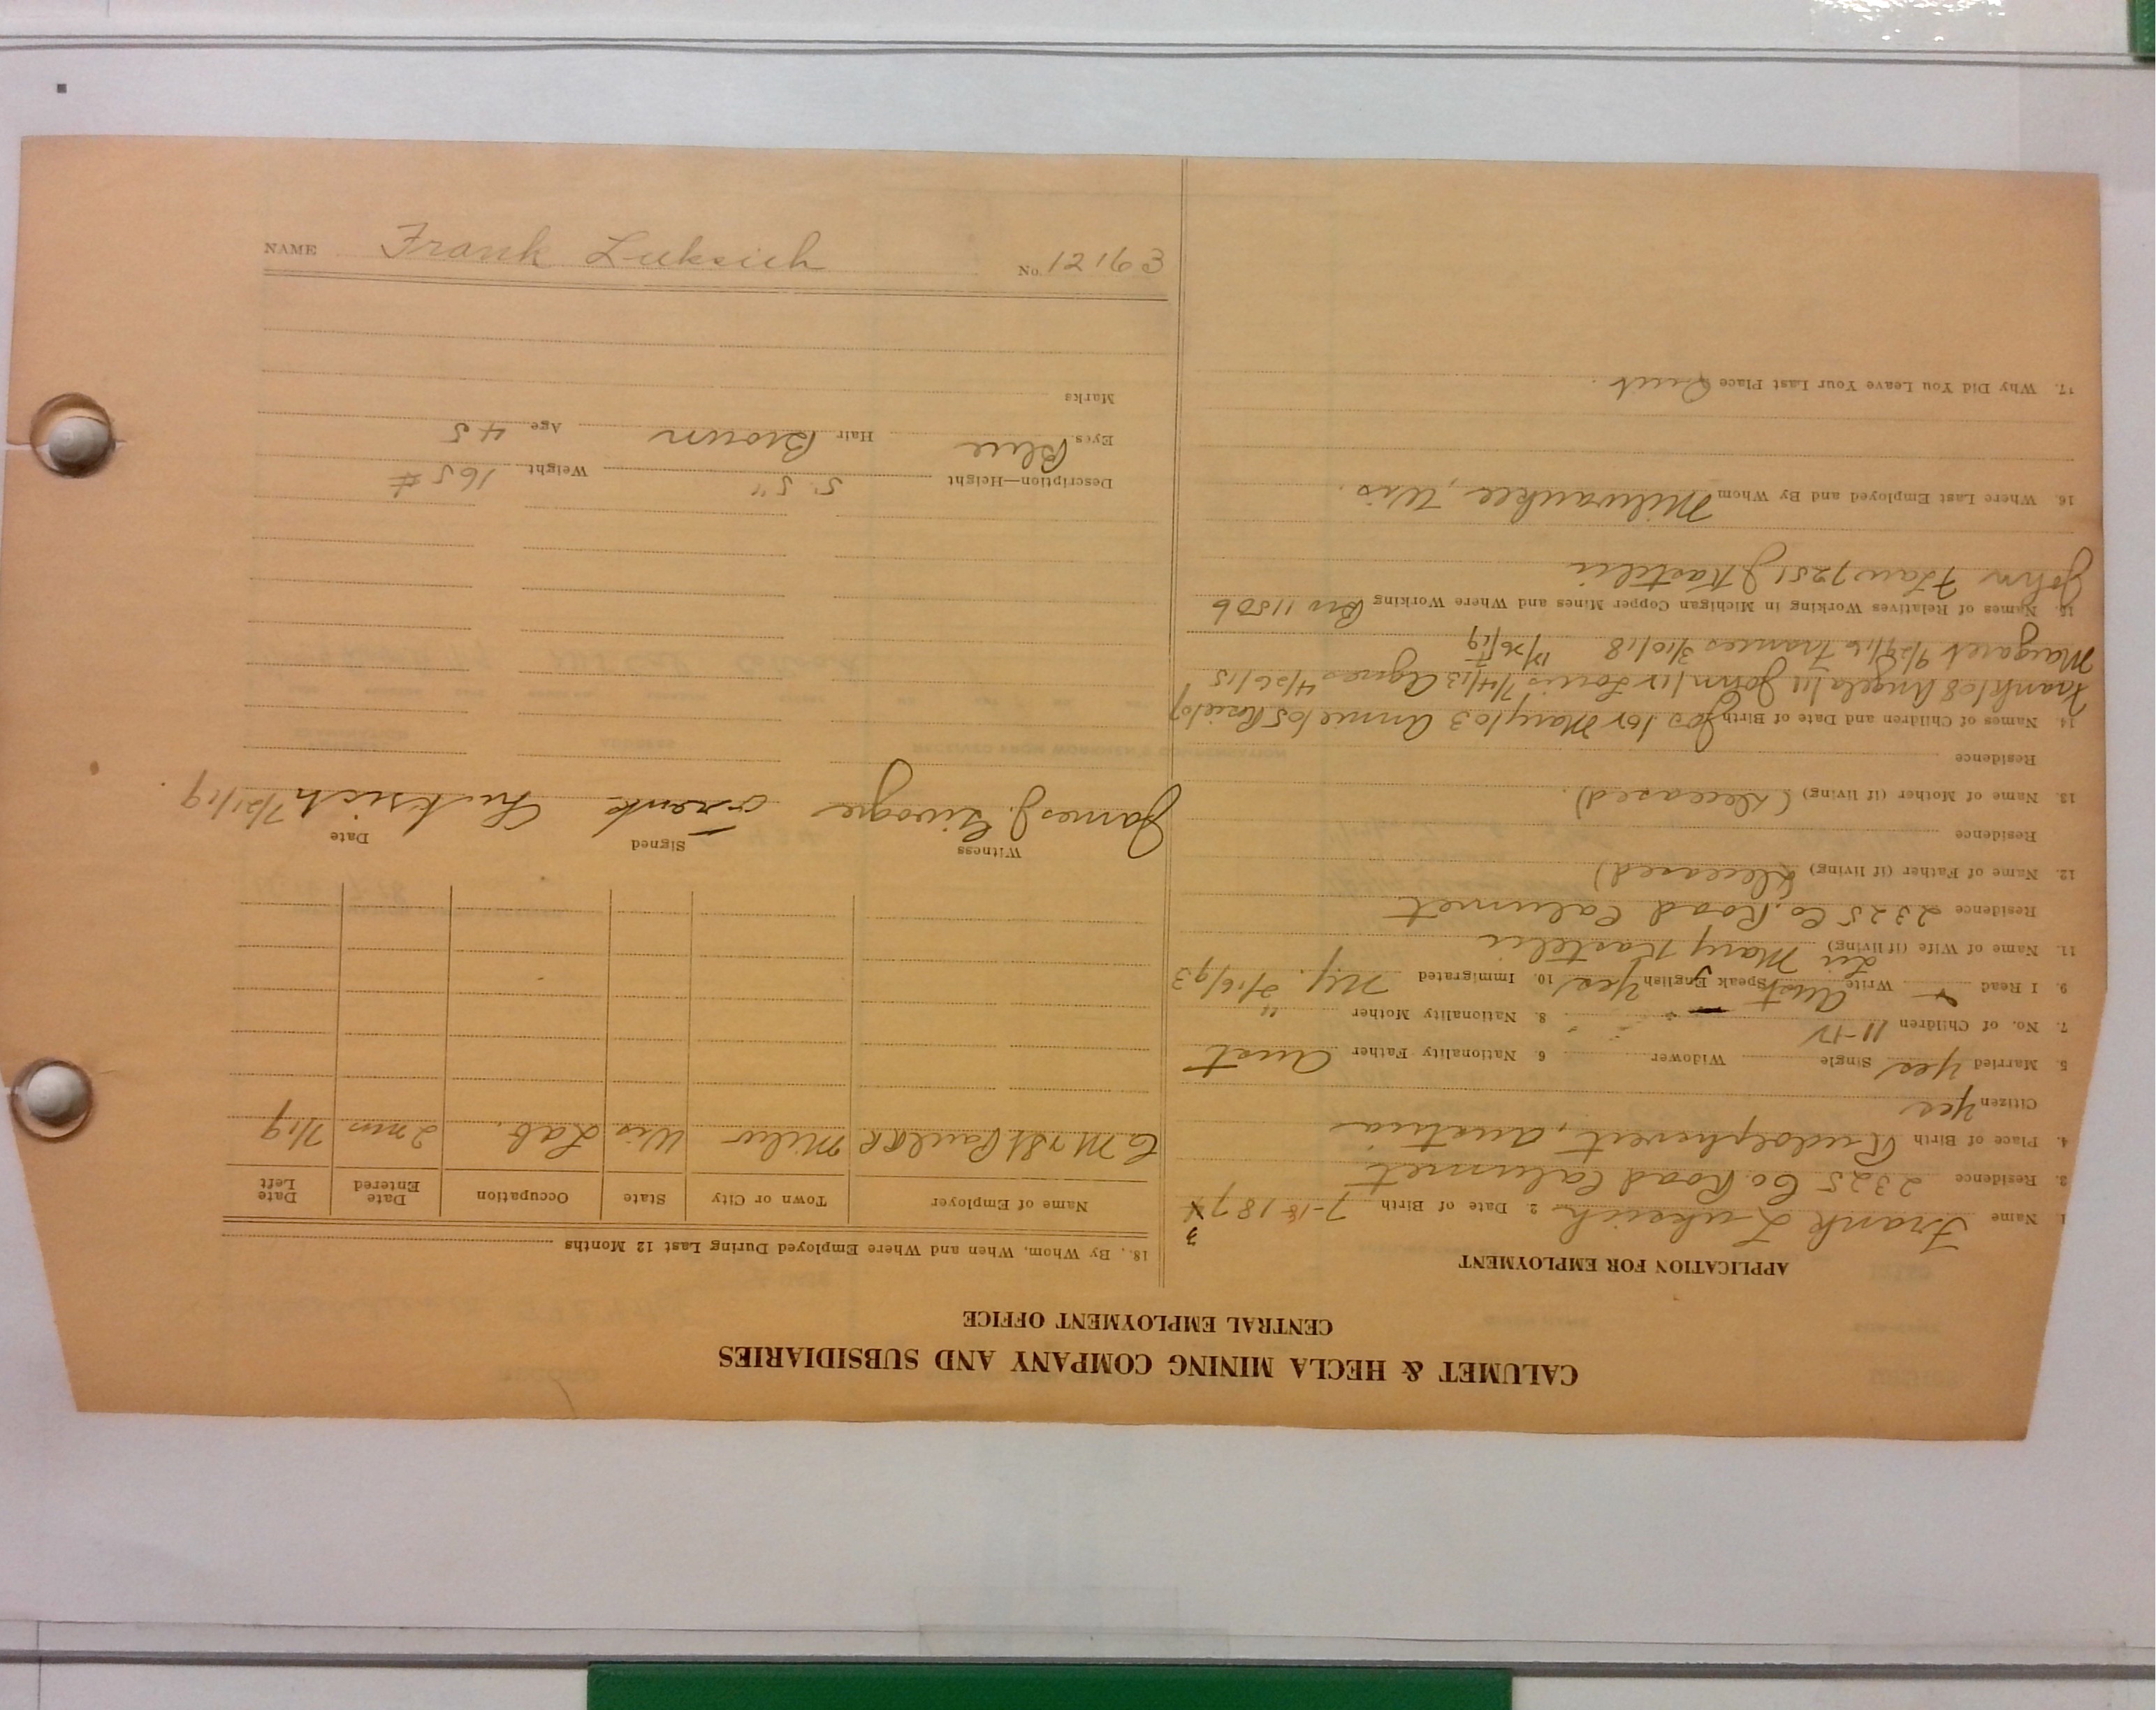 CALUMET & HECLA MINING COMPANY AND SUBSIDIARIES
CENTRAL EMPLOYMENT OFFICE
APPLICATION FOR EMPLOYMENT
1. Name Frank Luksich 2. Date of Birth 7-18-187 3
3. Residence 2325 Co. Road Calumet
4. Place of Birth Rudolphsvert, Austria
Citizen Yes
5. Married Yes Single Widower 6. Nationality Father Aust
7. No. of Children 11-12 8. Nationality Mother "
9. I Read Write Aust Speak English Yes 10. Immigrated N.Y. 2/16/93
11. Name of Wife (if living) Liv Mary Kastelic
Residence 2325 Co. Road Calumet
12. Name of Father (if living) (Deceased)
Residence
13. Name of Mother (if living) (Deceased).
Residence
14. Names of Children and Date of Birth Jos 1/02 Mary/03 Annie/05 Rosie/07
Frank/08 Angela/11 John/12 Louis 7/4/13 Agnes 4/26/15
Margaret 9/29/16 Frances 3/10/18 12/26/19
15. Names of Relatives Working in Michigan Copper Mines and Where Working Bro 11506
John 7251 J Kastelic
16. Where Last Employed and By Whom Milwaukee, Wis.
17. Why Did You Leave Your Last Place Quit.
18. By Whom, When and Where Employed During Last 12 Months
Name of Employer Town or City State Occupation Date Entered Date Left
C M & St Paul RR Milw Wis Lab. 2 mos 7/19
Witness Signed Date
James J. Frank Luksich 7/21/19.
Description—Height 5' 5" Weight 165 #
Eyes Blue Hair Brown Age 45
Marks
NAME Frank Luksich No. 12163